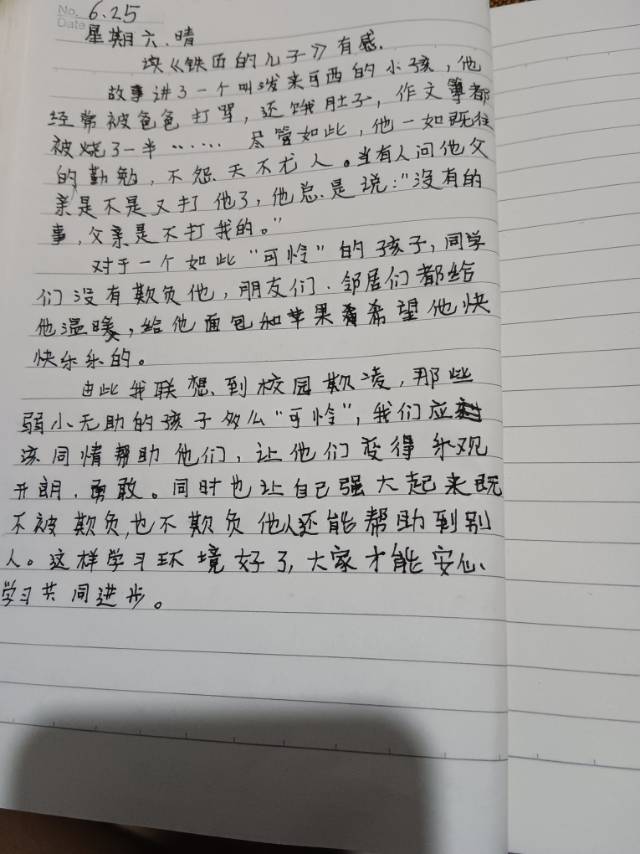 No. 6.25
Date
星期六.晴
读《铁匠的儿子》有感.
故事讲了一个叫泼来可西的小孩,他
经常被爸爸打骂,还饿肚子,作文簿都
被烧了一半…… 尽管如此,他一如既往
的勤勉,不怨天不尤人。当有人问他父
亲是不是又打他了,他总是说:"没有的
事,父亲是不打我的。"
对于一个如此"可怜"的孩子,同学
们没有欺负他,朋友们.邻居们都给
他温暖,给他面包和苹果希望他快
快乐乐的。
由此我联想到校园欺凌,那些
弱小无助的孩子多么"可怜",我们应
该同情帮助他们,让他们变得乐观
开朗.勇敢。同时也让自己强大起来既
不被欺负,也不欺负他人还能帮助到别
人。这样学习环境好了,大家才能安心、
学习共同进步。